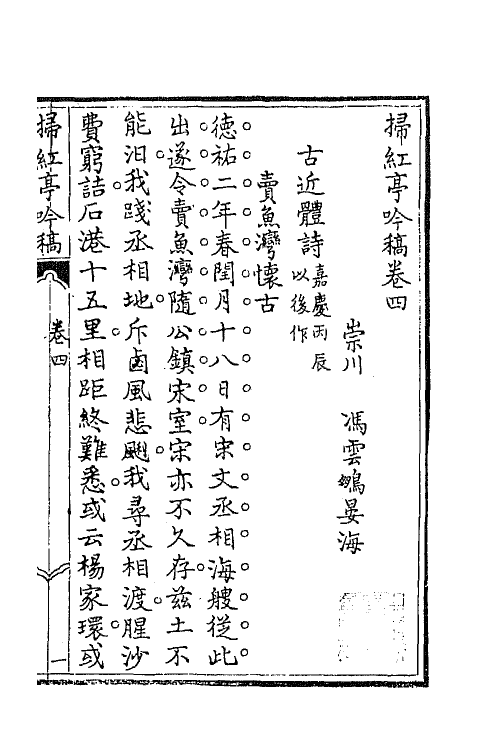 掃紅亭吟稿卷四
崇川 馮雲鵷晏海
古近體詩嘉慶丙辰以後作
賣魚灣懷古
德祐二年春閏月十八日有宋文丞相海艘從此
出遂令賣魚灣隨公鎮宋室宋亦不久存茲土不
能汨我踐丞相地斥鹵風悲颲我尋丞相渡腥沙
費窮詰石港十五里相距終難悉或云楊家環或
掃紅亭吟稿 卷四 一